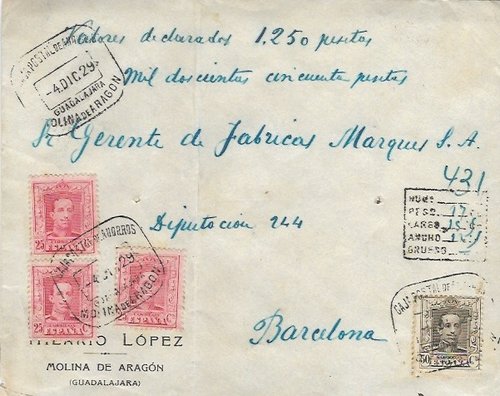 Valores declarados 1.250 pesetas
CAJA POSTAL DE
4.DIC.29
GUADALAJARA
MOLINA DE ARAGON
Mil doscientas cincuenta pesetas
Sr Gerente de Fabricas Marques S.A.
431
NUM
PESO 17
LARGO
ANCHO
GRUESO
Diputación 244
25
ESPAÑA
CAJA POSTAL DE AHORROS
DIC 29
MOLINA DE ARAGON
25
ESPAÑA
ESPAÑA
Barcelona
CAJA POSTAL DE
50
HILARIO LÓPEZ
MOLINA DE ARAGÓN
(GUADALAJARA)